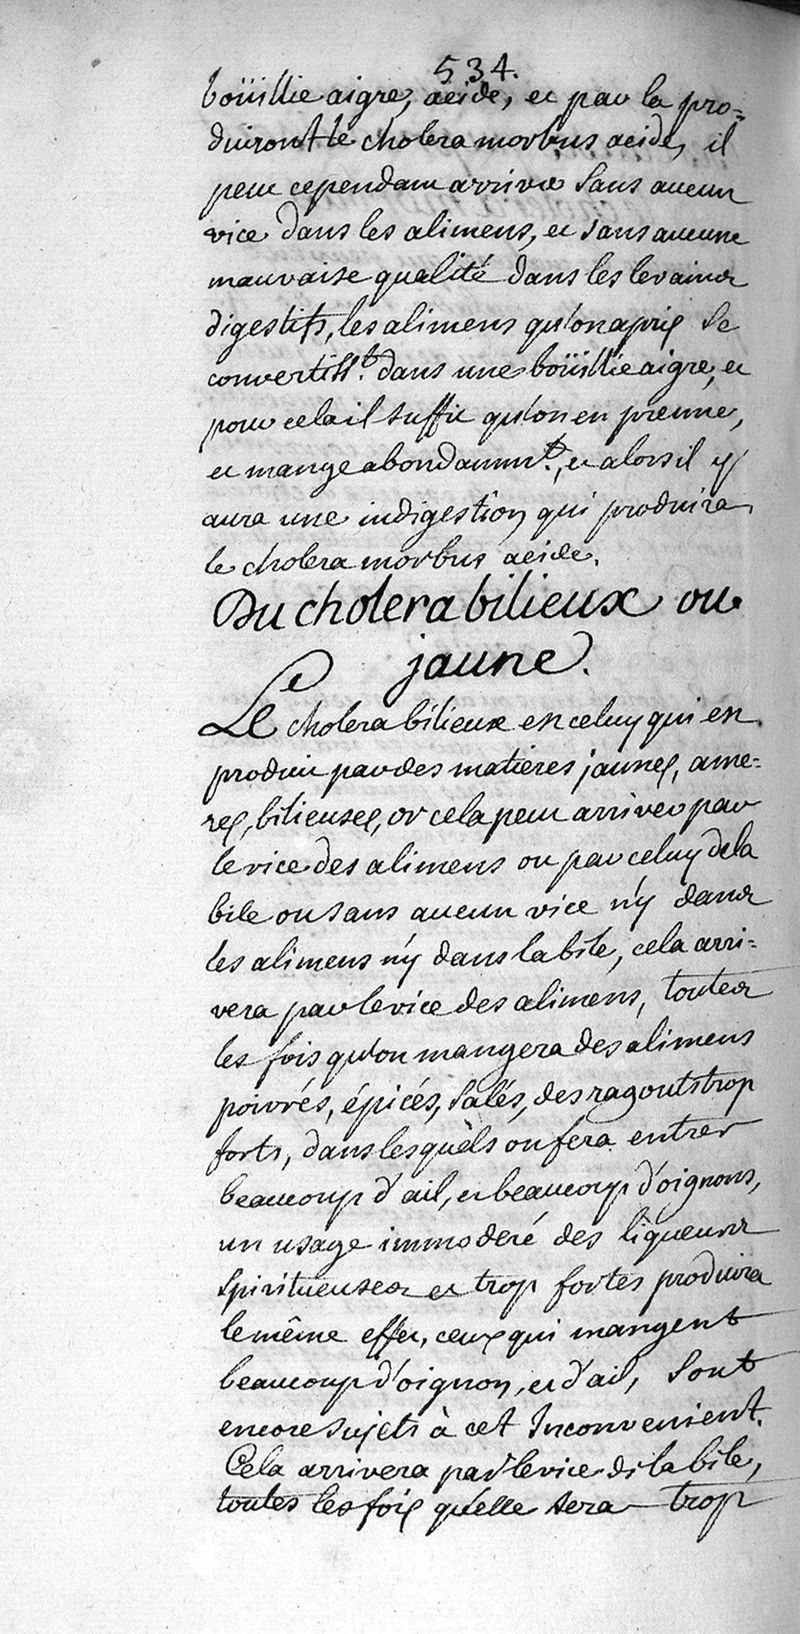 534.
boüillie aigre, acide, et par la pro=
duiront le cholera morbus acide, il
peut cependant arriver sans aucun
vice dans les alimens, et sans aucune
mauvaise qualité dans les levains
digestifs, les alimens qu'on a pris se
convertiss.t dans une boüillie aigre, et
pour cela il suffit qu'on en prenne,
et mange abondamm.t, et alors il y
aura une indigestion qui produira
le cholera morbus acide.
Du cholera bilieux ou
jaune.
Le cholera bilieux est celuy qui est
produit par des matières jaunes, ame=
res, bilieuses, or cela peut arriver par
le vice des alimens ou par celuy de la
bile ou sans aucun vice n'y dans
les alimens n'y dans la bile, cela arri=
vera par le vice des alimens, toutes
les fois qu'on mangera des alimens
poivrés, épicés, salés, des ragouts trop
forts, dans lesquèls on fera entrer
beaucoup d'ail, et beaucoup d'oignons,
un usage immoderé des liqueurs
spiritueuses et trop fortes produira
le même effet, ceux qui mangent
beaucoup d'oignon, et d'ail, sont
encore sujets à cet Inconvenient.
Cela arrivera par le vice de la bile,
toutes les fois qu'elle sera trop